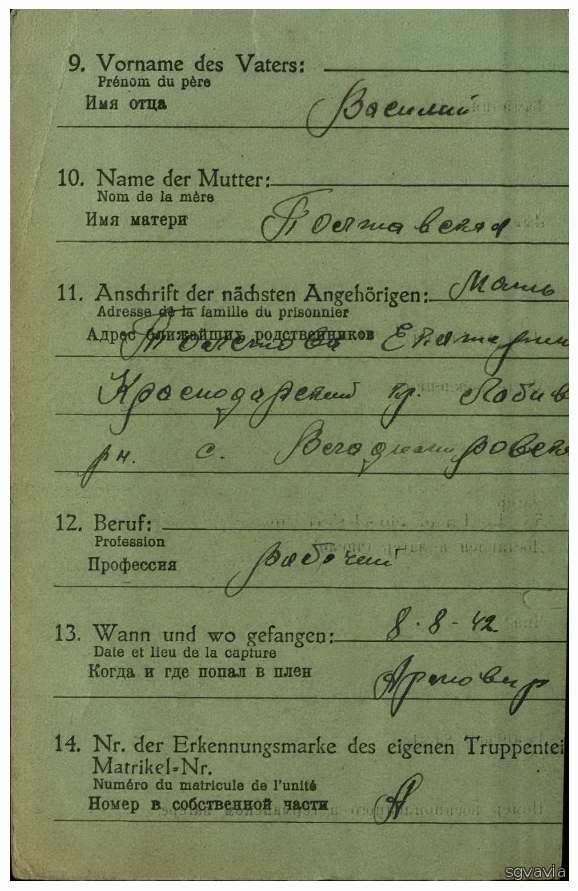 9. Vorname des Vaters:
Prénom du père
Имя отца
Василий
10. Name der Mutter:
Nom de la mère
Имя матери
Полтавская
11. Anschrift der nächsten Angehörigen: Мать
Adresse de la famille du prisonnier
Адрес ближайших родственников
Екатерин
Краснодарский кр. Лабин
рн. с. Владимировск
12. Beruf:
Profession
Профессия
рабочий
13. Wann und wo gefangen: 8-8-42
Date et lieu de la capture
Когда и где попал в плен
Армовир
14. Nr. der Erkennungsmarke des eigenen Truppentei
Matrikel-Nr.
Numéro du matricule de l'unité
Номер в собственной части
sgvavia